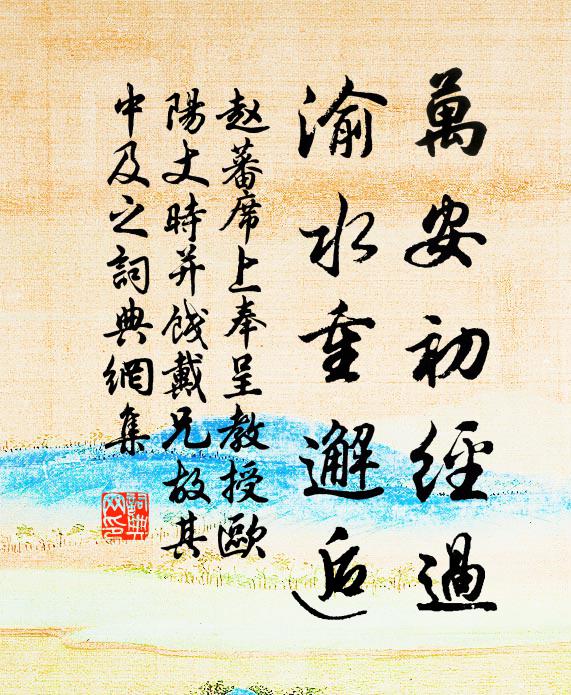 萬安初經過
渝水重邂逅
赵蕃席上奉呈教授歐
陽丈時并餞戴兄故其
中及之詞典網集
詞典
网印